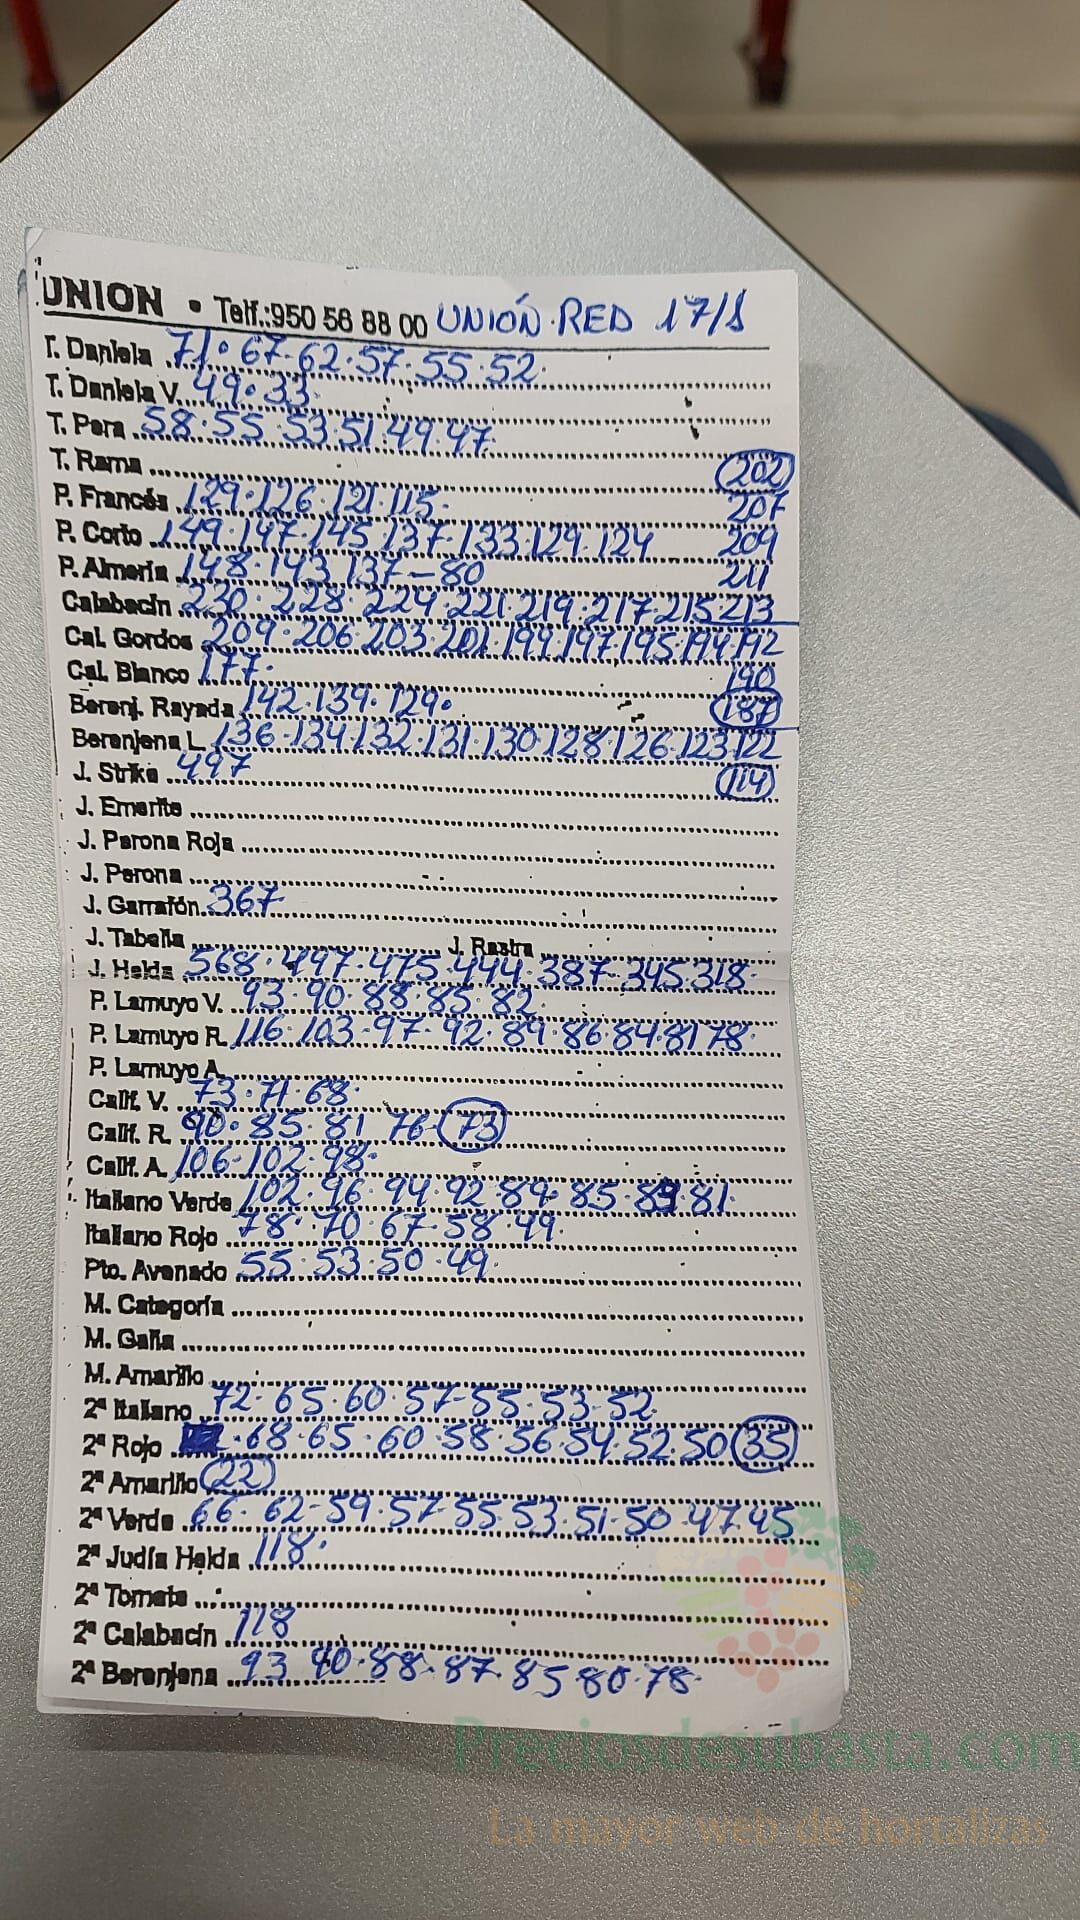 UNION • Telf.:950 56 88 00 UNIÓN RED 17/1
T. Daniela 71·67·62·57·55·52·
T. Daniela V. 49·33·
T. Pera 58·55·53·51·49·47·
T. Rama (202)
P. Francés 129·126·121·115· 207
P. Corto 149·147·145·137·133·129·124 209
P. Almería 148·143·137-80 211
Calabacín 230·228·224·221·219·217·215·213
Cal. Gordos 209·206·203·201·199·197·195·194·192
Cal. Blanco 177· 190
Berenj. Rayada 142·139·129· (187)
Berenjena L. 136·134·132·131·130·128·126·123·122
J. Strike 497 (114)
J. Emerite
J. Perona Roja
J. Perona
J. Garrafón 367
J. Tabella J. Rastra
J. Helda 568·497·475·444·387·345·318·
P. Lamuyo V. 93·90·88·85·82
P. Lamuyo R. 116·103·97·92·89·86·84·81·78·
P. Lamuyo A.
Calif. V. 73·71·68·
Calif. R. 90·85·81 76·(73)
Calif. A. 106·102·98·
Italiano Verde 102·96·94·92·89·85·83·81·
Italiano Rojo 78·70·67·58·49·
Pto. Avenado 55·53·50·49·
M. Categoría
M. Galia
M. Amarillo
2ª Italiano 72·65·60·57·55·53·52
2ª Rojo ·68·65·60·58·56·54·52·50 (35)
2ª Amarillo (22)
2ª Verde 66·62·59·57·55·53·51·50·47·45
2ª Judía Helda 118·
2ª Tomate
2ª Calabacín 118
2ª Berenjena 93 90·88·87·85·80·78·
Preciosdesubasta.com
La mayor web de hortalizas